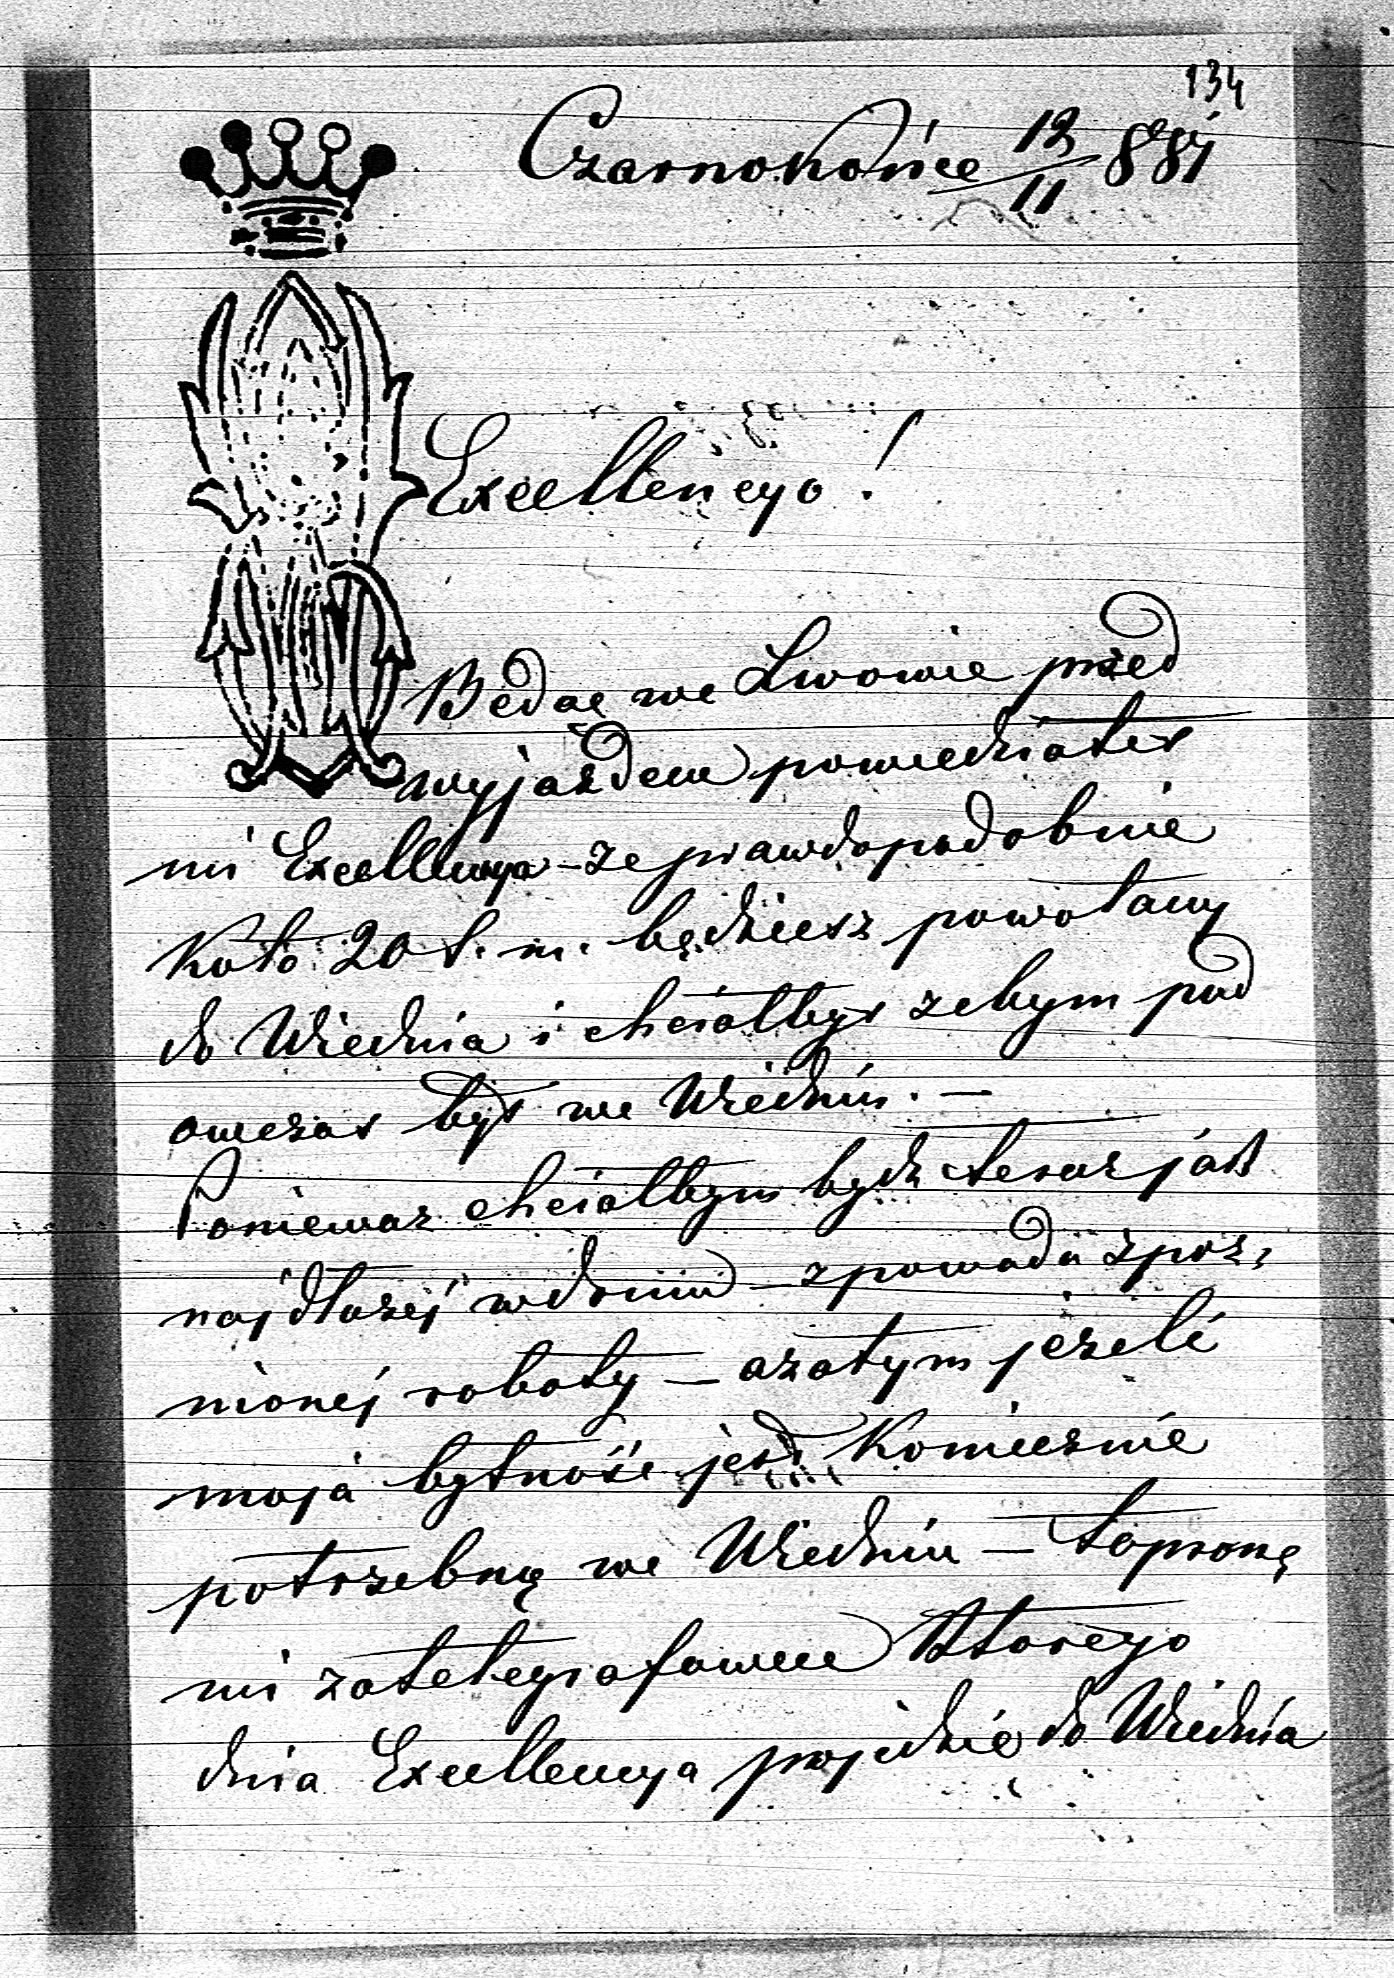 134
Czarnokońce 12/11 881
Excellencyo!
Bedac we Lwowie przed
wyjazdem powiedziałeś
mi Excellencya – ze prawdopodobnie
Koło 20 t. m. będziesz powołany
do Wiednia i chciałbyś zebym pod
owczas był we Wiedniu. –
Poniewaz chciałbym bydz teraz jak
najdłuzej w domu – z powodu zpoz,
nionej roboty – a zatym jezeli
moja bytność jest Koniecznie
potrzebną we Wiedniu – to proszę
mi zatelegrafowac Którego
dnia Excellencya przyjedzie do Wiednia